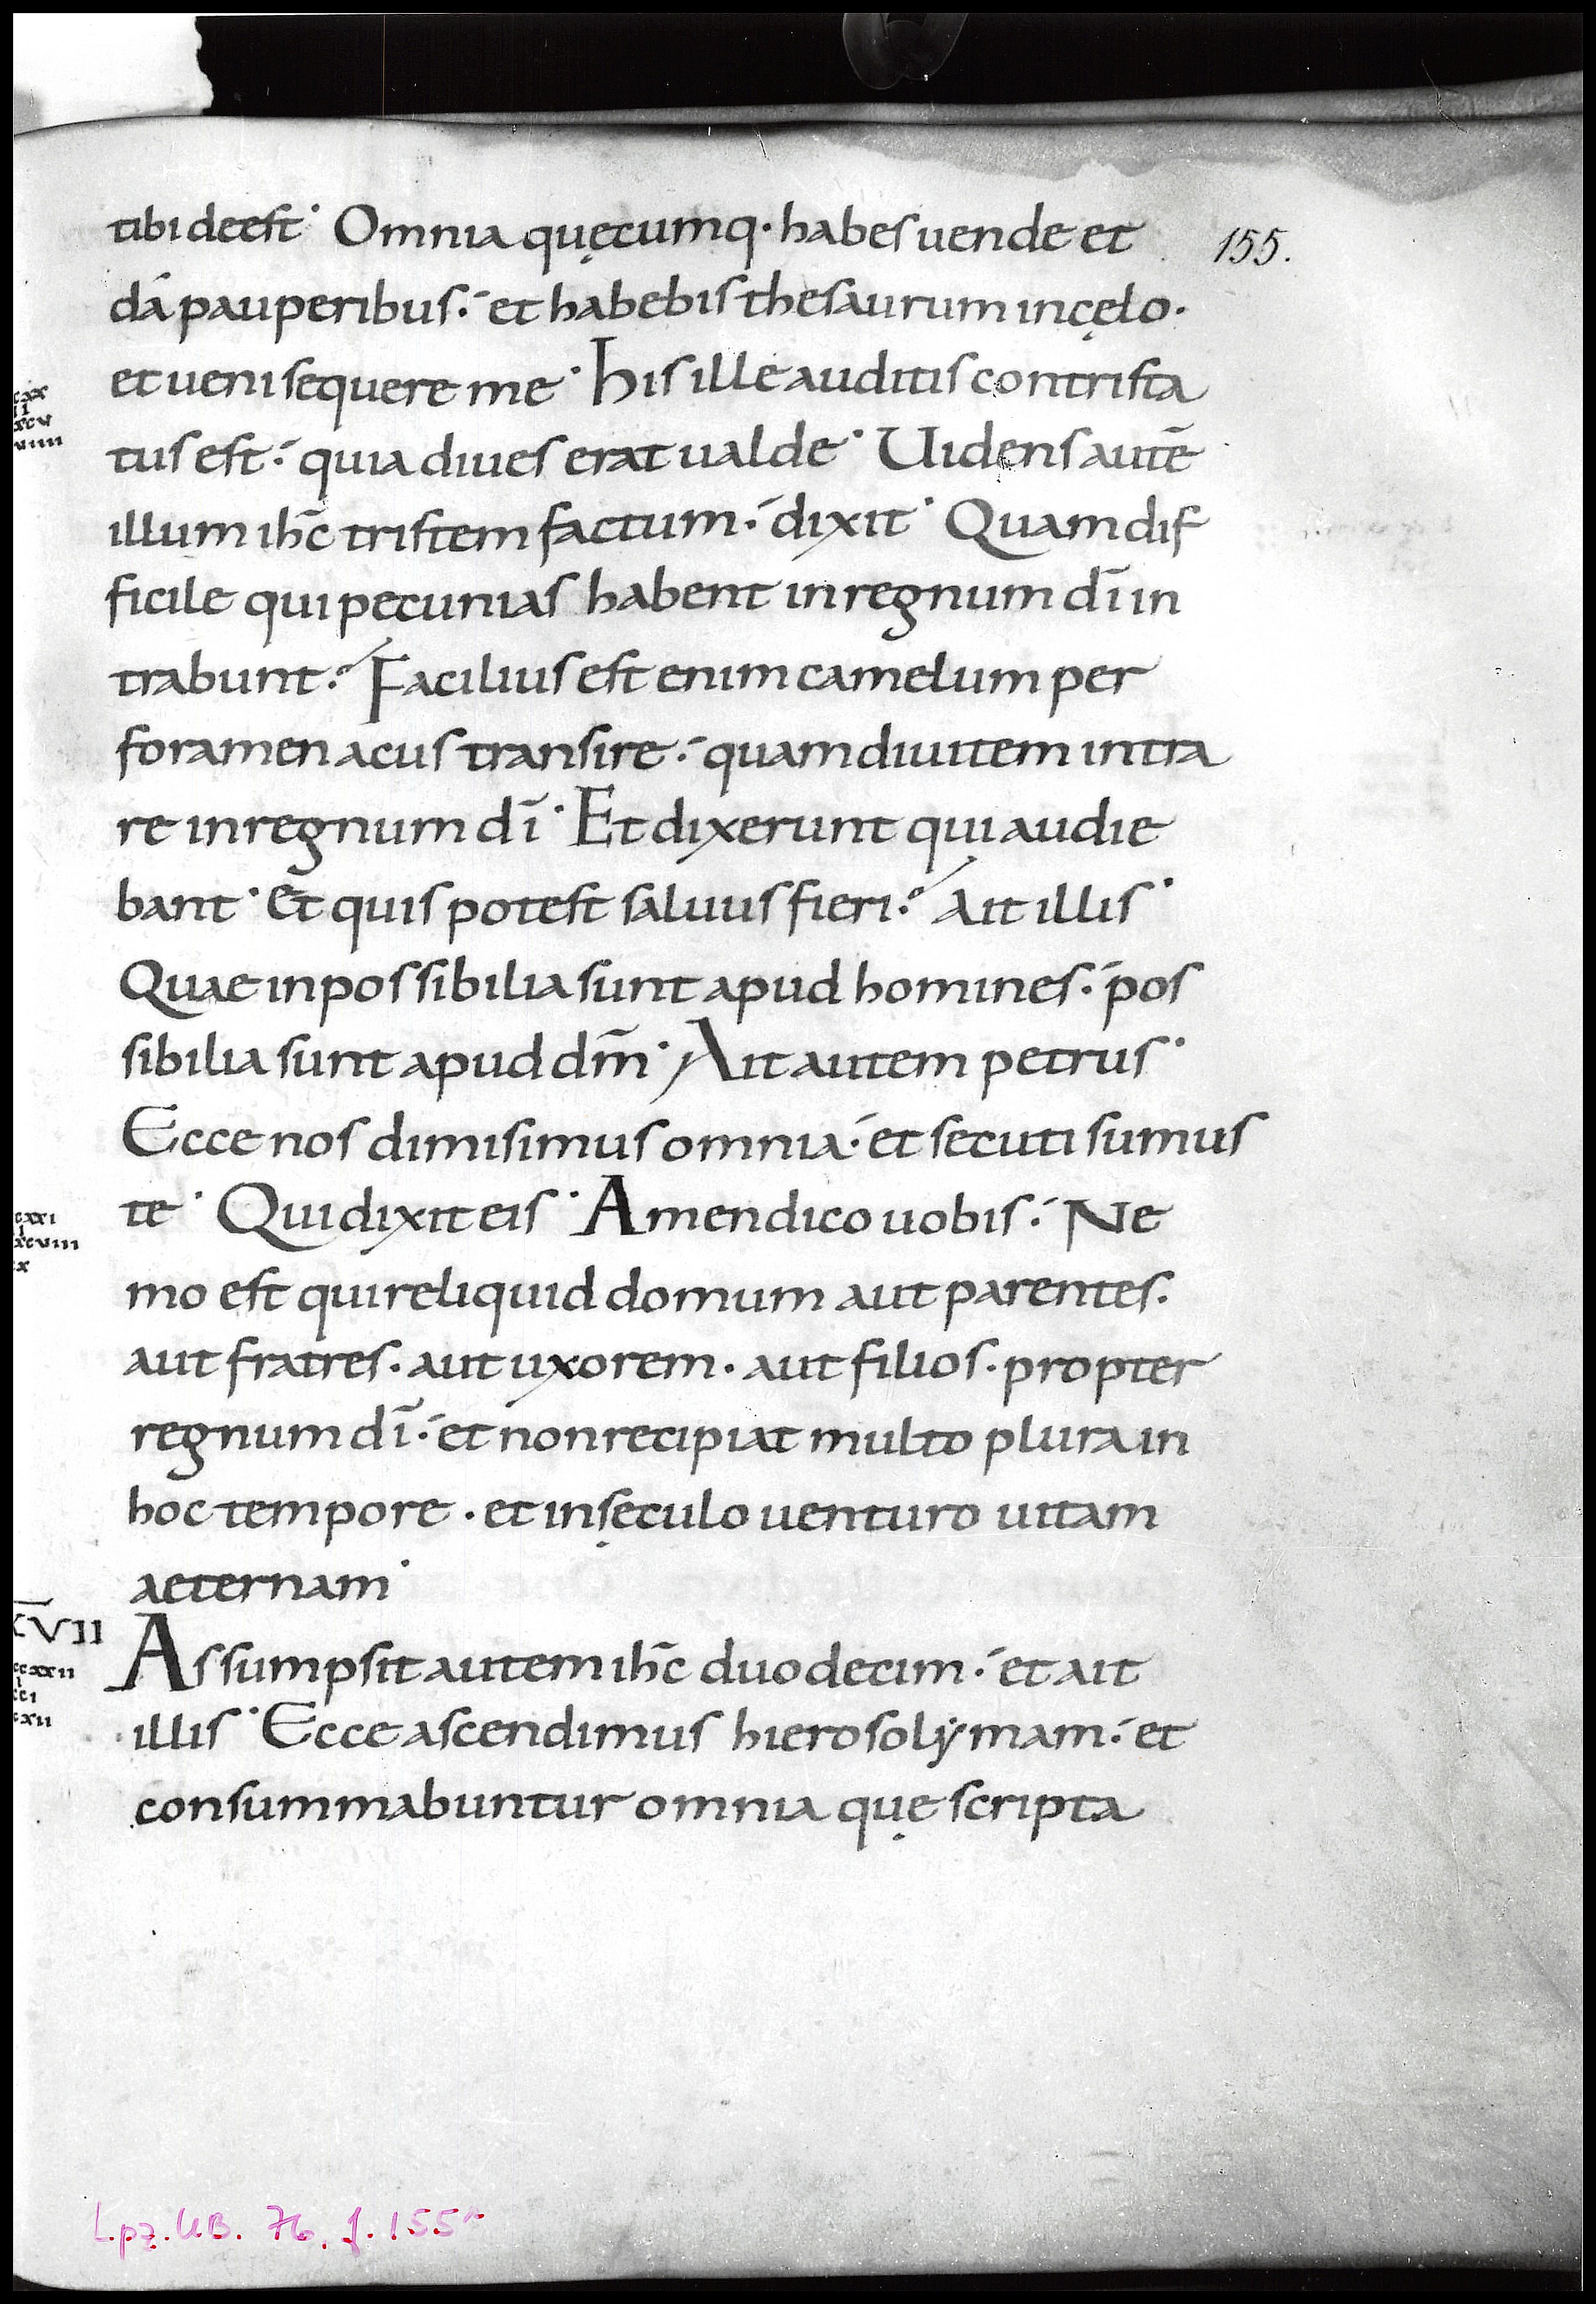 tibi deest· Omnia quęcumq· habes uende et
155.
dá pauperibus· et habebis thesaurum in cęlo·
et ueni sequere me· his ille auditis contrista
tus est· quia diues erat ualde· Uidens autē
illum ihc̄ tristem factum· dixit· Quam dif
ficile qui pecunias habent in regnum dī in
trabunt· Facilius est enim camelum per
foramen acus transire· quam diuitem intra
re in regnum dī· Et dixerunt qui audie
bant· et quis potest saluus fieri· Ait illis·
Quae inpossibilia sunt apud homines· pos
sibilia sunt apud dm̄· Ait autem petrus·
Ecce nos dimisimus omnia· et secuti sumus
te· Qui dixit eis· Amen dico uobis· Ne
mo est qui reliquid domum aut parentes·
aut fratres· aut uxorem· aut filios· propter
regnum dī· et non recipiat multo plura in
hoc tempore· et in sęculo uenturo uitam
aeternam·
Assumpsit autem ihc̄ duodecim· et ait
illis· Ecce ascendimus hierosolẏmam· et
consummabuntur omnia quę scripta
Lpz. UB. 76, f. 155r